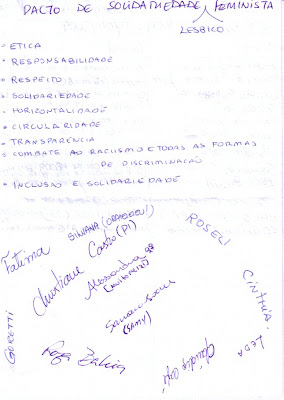 PACTO DE SOLIDARIEDADE FEMINISTA
LESBICO
• ETICA
• RESPONSABILIDADE
• RESPEITO
• SOLIDARIEDADE
• HORIZONTALIDADE
• CIRCULARIDADE
• TRANSPARÊNCIA
• COMBATE AO RACISMO E TODAS AS FORMAS
DE DISCRIMINAÇÃO
• INCLUSÃO E SOLIDARIEDADE
Fatima
SILVANA
ROSELI
Christiane Castro (PI)
Alessandra
CINTHIA.
(SAMY)
GORETTI
LEDA